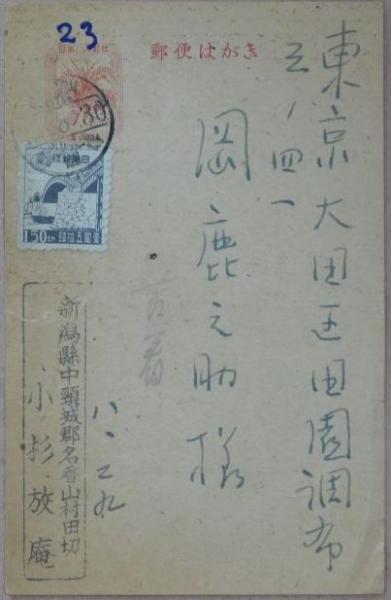 23
郵便はがき
東京大田区田園調布
三ノ四一
岡鹿之助様
八、二九
新潟縣中頸城郡名香山村田切
小杉放庵
30
1.50